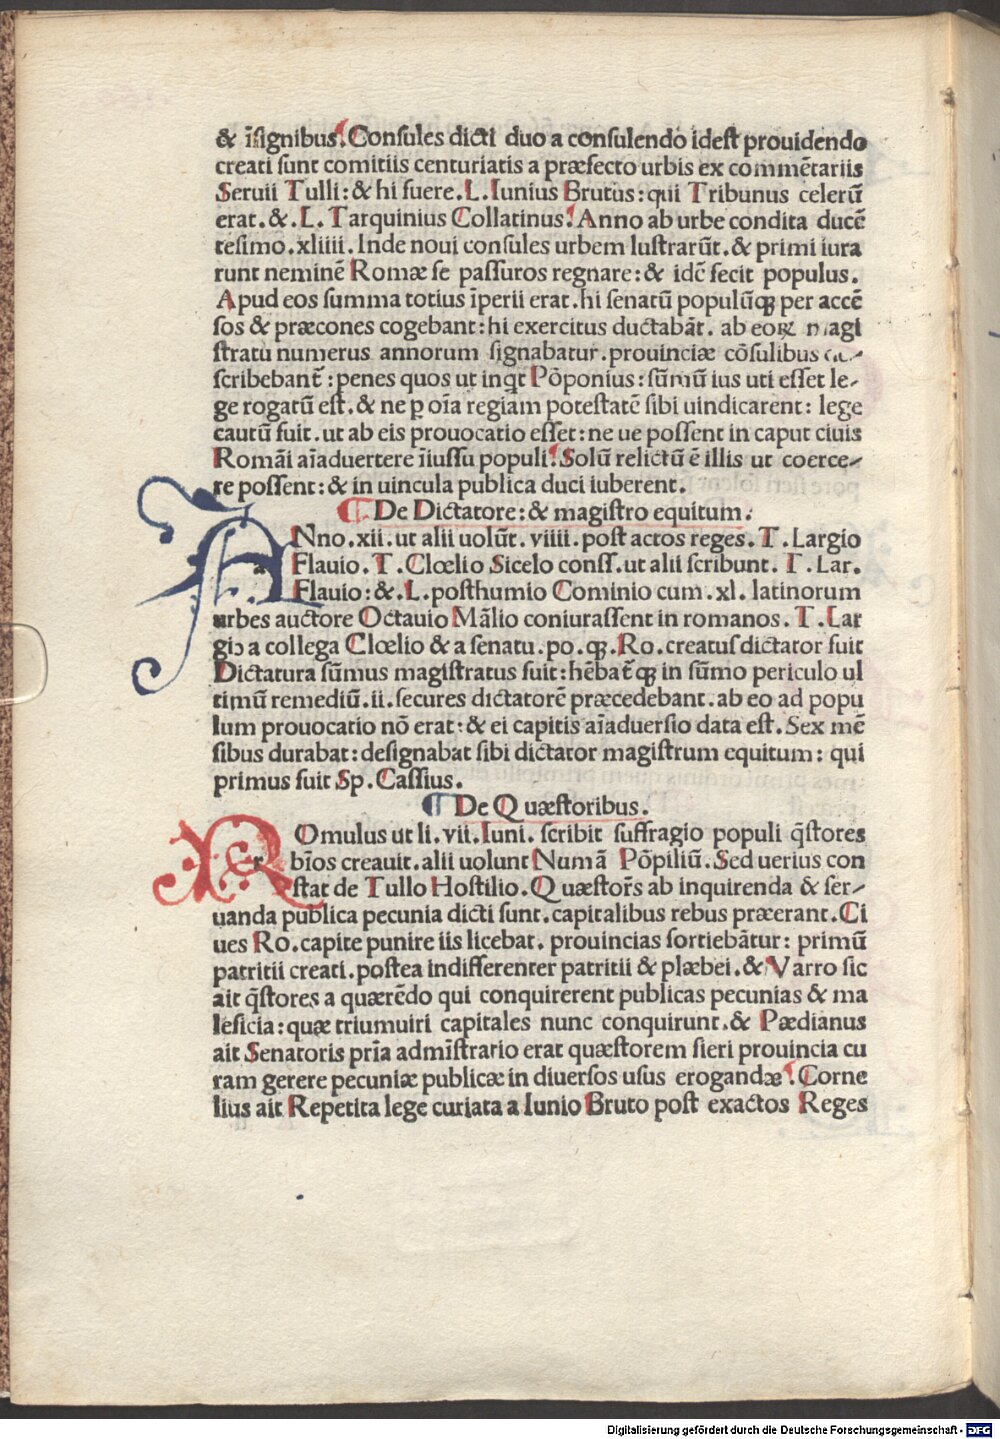 & īſignibus. Conſules dicti duo a conſulendo ideſt prouidendo
creati ſunt comitiis centuriatis a præfecto urbis ex commētariis
Seruii Tulli: & hi fuere. L. Iunius Brutus: qui Tribunus celerū
erat. &. L. Tarquinius Collatinus. Anno ab urbe condita ducē
teſimo. xliiii. Inde noui conſules urbem luſtrarūt. & primi iura
runt neminē Romæ ſe paſſuros regnare: & idē fecit populus.
Apud eos ſumma totius īperii erat. hi ſenatū populūqꝫ per accē
ſos & præcones cogebant: hi exercitus ductabāt. ab eoꝝ magi
ſtratu numerus annorum ſignabatur. prouinciæ cōſulibus
ſcribebant̄: penes quos ut inqt Pōponius: ſūmū ius uti eſſet le-
ge rogatū eſt. & ne ꝑ oīa regiam poteſtatē ſibi uindicarent: lege
cautū fuit. ut ab eis prouocatio eſſet: ne ue poſſent in caput ciuis
Romāi aīaduertere īiuſſu populi. Solū relictū ē illis ut coerce-
re poſſent: & in uincula publica duci iuberent.
¶ De Dictatore: & magiſtro equitum.
ANno. xii. ut alii uolūt. viiii. poſt actos reges. T. Largio
Flauio. T. Clœlio Sicelo conſſ. ut alii ſcribunt. T. Lar.
Flauio: &. L. poſthumio Cominio cum. xl. latinorum
urbes auctore Octauio Mālio coniuraſſent in romanos. T. Lar
gio a collega Clœlio & a ſenatu. po. qꝫ. Ro. creatuſ dictator fuit
Dictatura ſūmus magiſtratus fuit: hēbat̄qꝫ in ſūmo periculo ul
timū remediū. ii. ſecures dictatorē præcedebant. ab eo ad popu
lum prouocatio nō erat: & ei capitis aīaduerſio data eſt. Sex mē
ſibus durabat: deſignabat ſibi dictator magiſtrum equitum: qui
primus fuit Sp. Caſſius.
¶ De Quæſtoribus.
ROmulus ut li. vii. Iuni. ſcribit ſuffragio populi q̄ſtores
bīos creauit. alii uolunt Numā Pōpiliū. Sed uerius con
ſtat de Tullo Hoſtilio. Quæſtor̄s ab inquirenda & ſer-
uanda publica pecunia dicti ſunt. capitalibus rebus præerant. Ci
ues Ro. capite punire iis licebat. prouincias ſortiebātur: primū
patritii creati. poſtea indifferenter patritii & plæbei. & Varro ſic
ait q̄ſtores a quærēdo qui conquirerent publicas pecunias & ma
leficia: quæ triumuiri capitales nunc conquirunt. & Pædianus
ait Senatoris prīa admīſtratio erat quæſtorem fieri prouincia cu
ram gerere pecuniæ publicæ in diuerſos uſus erogandæ. Corne
lius ait Repetita lege curiata a Iunio Bruto poſt exactos Reges
Digitalisierung gefördert durch die Deutsche Forschungsgemeinschaft - DFG